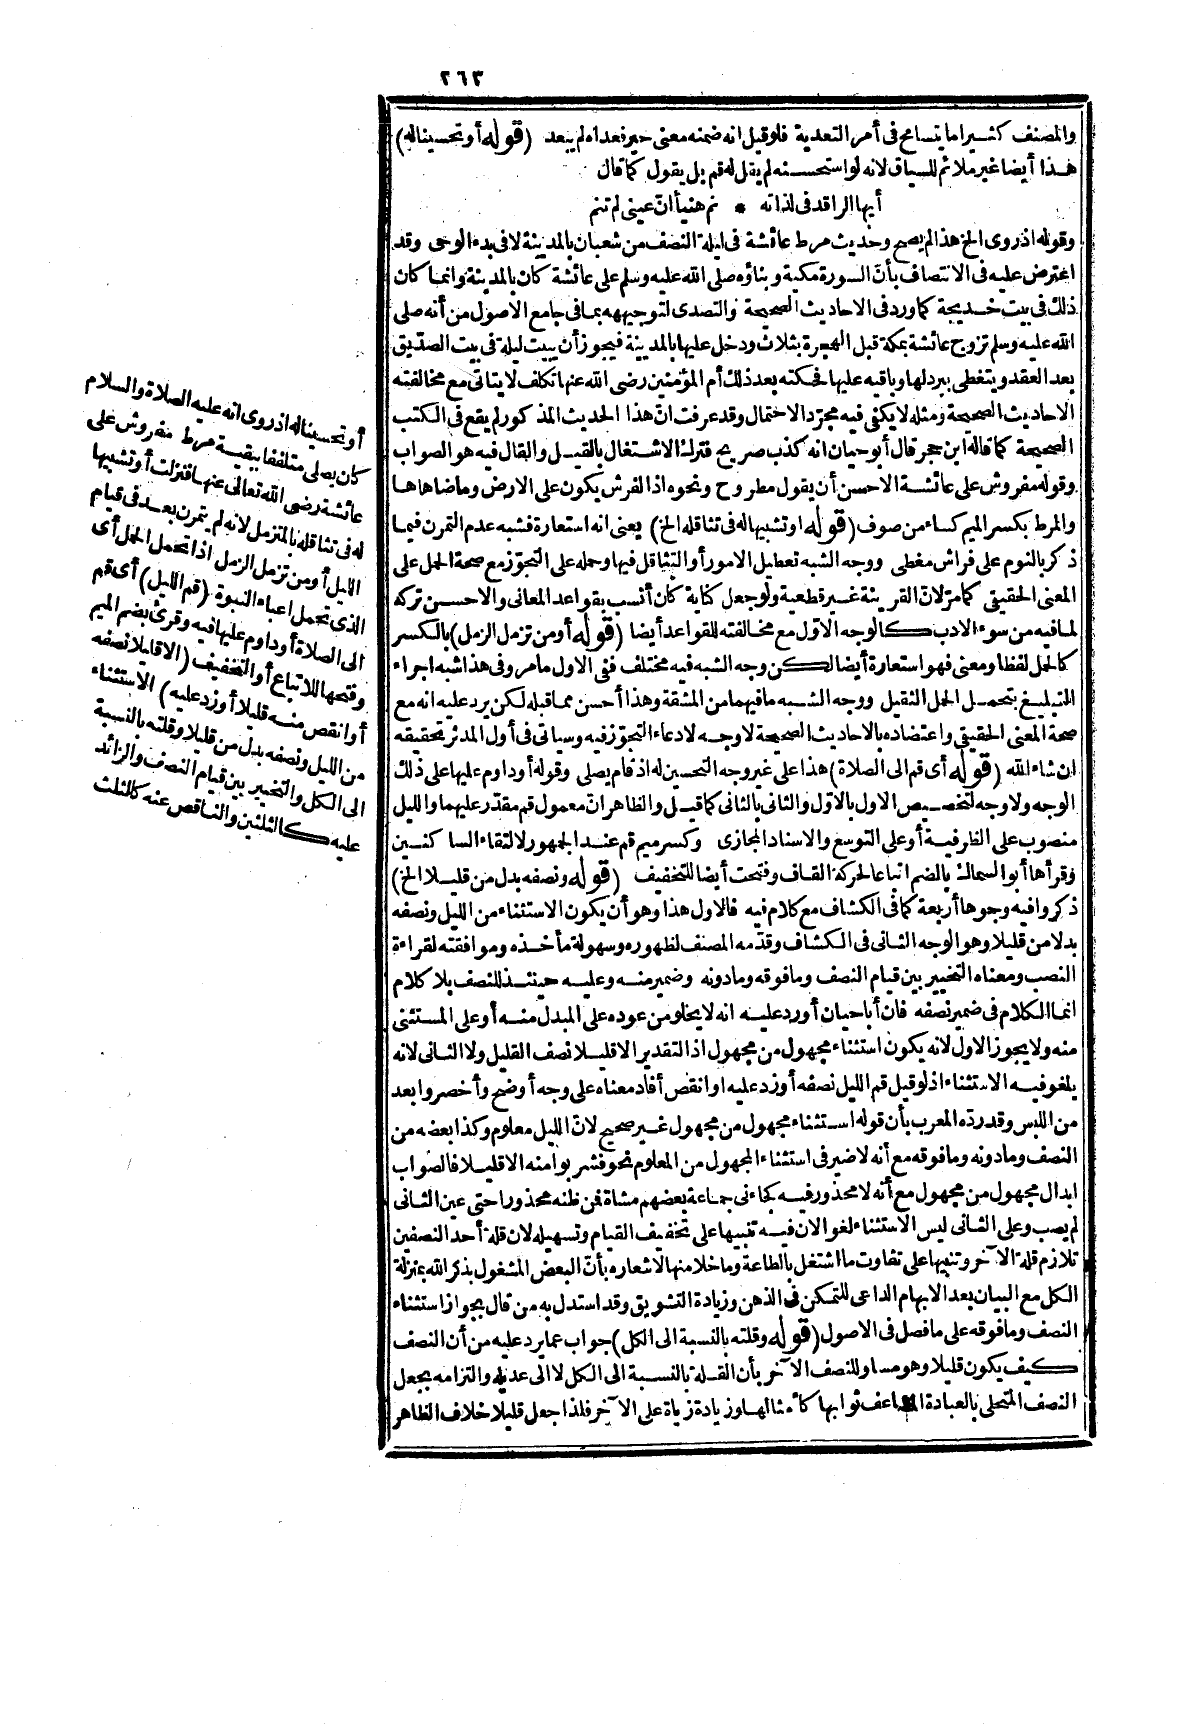 ٢٦٣
والمصنف كثيرا ما يتسامح في أمر التعدية فلو قيل انه ضمنه معنى حير فعداه لم يبعد (قوله أو تحسينا له)
هذا أيضا غير ملائم للسياق لانه لو استحسنه لم يقل له قم بل يقول كما قال
أيها الراقد في لذاته * نم هنيأ انّ عيني لم تنم
وقوله اذ روى الخ هذا لم يصح وحديث مرط عائشة في ليلة النصف من شعبان بالمدينة لا في بدء الوحى وقد
اعترض عليه في الانتصاف بأنّ السورة مكية وبناؤه صلى الله عليه وسلم على عائشة كان بالمدينة وانما كان
ذلك في بيت خديجة كما ورد في الاحاديث الصحيحة والتصدى لتوجيهه بما في جامع الاصول من أنه صلى
الله عليه وسلم تزوج عائشة بمكة قبل الهجرة بثلاث ودخل عليها بالمدينة فيجوز أن يبيت ليلة في بيت الصدّيق
بعد العقد ويتغطى ببرد لها وباقيه عليها فحكته بعد ذلك أم المؤمنين رضى الله عنها تكلف لا يتاتى مع مخالفته
الاحاديث الصحيحة ومثله لا يكفى فيه مجرّد الاحتمال وقد عرفت انّ هذا الحديث المذكور لم يقع في الكتب
الصحيحة كما قاله ابن حجر قال أبو حيان انه كذب صريح فترك الاشتغال بالقيل والقال فيه هو الصواب
وقوله مفروش على عائشة الاحسن أن يقول مطروح ونحوه اذ الفرش يكون على الارض وماضاهاها
والمرط بكسر الميم كساء من صوف (قوله او تشبيها له في تثاقله الخ) يعنى انه استعارة فشبه عدم التمرن فيما
ذكر بالنوم على فراش مغطى ووجه الشبه تعطيل الامور أو التثاقل فيها وحمله على التجوّز مع صحة الحمل على
المعنى الحقيقى كما مرّ لانّ القرينة غير قطعية ولو جعل كناية كان أنسب بقواعد المعانى والاحسن تركه
لما فيه من سوء الادب كالوجه الاوّل مع مخالفته للقواعد أيضا (قوله أو من تزمل الزمل) بالكسر
كالحمل لفظا ومعنى فهو استعارة أيضا لكن وجه الشبه فيه مختلف ففى الاول ما مر وفى هذا شبه اجراء
التبليغ بتحمل الحمل الثقيل ووجه الشبه ما فيهما من المشقة وهذا أحسن مما قبله لكن يرد عليه انه مع
صحة المعنى الحقيقى واعتضاده بالاحاديث الصحيحة لا وجه لادعاء التجوّز فيه وسيأتى في أول المدثر تحقيقه
ان شاء الله (قوله أى قم الى الصلاة) هذا على غير وجه التحسين له اذ قام يصلى وقوله أو داوم عليها على ذلك
الوجه ولا وجه لتخصيص الاول بالاوّل والثانى بالثانى كما قيل والظاهر انّ معمول قم مقدّر عليهما والليل
منصوب على الظرفية أو على التوسع والاسناد المجازى وكسر ميم قم عند الجمهور لالتقاء الساكنين
وقرأها أبو السمال بالضم اتباعا لحركة القاف وفتحت أيضا للتخفيف (قوله ونصفه بدل من قليلا الخ)
ذكروا فيه وجوها أربعة كما في الكشاف مع كلام فيه فالاول هذا وهو أن يكون الاستثناء من الليل ونصفه
بدلا من قليلا وهو الوجه الثانى في الكشاف وقدّمه المصنف لظهوره وسهولة مأخذه وموافقته لقراءة
النصب ومعناه التخيير بين قيام النصف وما فوقه وما دونه وضمير منه وعليه حينئذ للنصف بلا كلام
انما الكلام في ضمير نصفه فان أبا حيان أورد عليه انه لا يخلو من عوده على المبدل منه أو على المستثنى
منه ولا يجوز الاول لانه يكون استثناء مجهول من مجهول اذ التقدير الا قليلا نصف القليل ولا الثانى لانه
يلغو فيه الاستثناء اذ لو قيل قم الليل نصفه أو زد عليه او انقص أفاد معناه على وجه أوضح وأخصر وابعد
من اللبس وقد ردّه المعرب بأن قوله استثناء مجهول من مجهول غير صحيح لانّ الليل معلوم وكذا بعضه من
النصف وما دونه وما فوقه مع أنه لا ضير في استثناء المجهول من المعلوم نحو فشربوا منه الا قليلا فالصواب
ابدال مجهول من مجهول مع أنه لا محذور فيه كجاءنى جماعة بعضهم مشاة فمن ظنه محذورا حتى عين الثانى
لم يصب وعلى الثانى ليس الاستثناء لغوا لان فيه تنبيها على تخفيف القيام وتسهيله لان قلة أحد النصفين
تلازم قلة الآخر وتنبيها على تفاوت ما اشتغل بالطاعة وما خلا منها الاشعاره بأنّ البعض المشغول بذكر الله بمنزلة
الكل مع البيان بعد الابهام الداعى للتمكن في الذهن وزيادة التشويق وقد استدل به من قال بجواز استثناء
النصف وما فوقه على ما فصل في الاصول (قوله وقلته بالنسبة الى الكل) جواب عما يرد عليه من أن النصف
كيف يكون قليلا وهو مساو للنصف الآخر بأن القلة بالنسبة الى الكل لا الى عديله والتزامه بجعل
النصف المتحلى بالعبادة المضاعف ثوابها كأمثالها وزيادة زيادة على الآخر فلذا جعل قليلا خلاف الظاهر
أو تحسينا له اذ روى انه عليه الصلاة والسلام
كان يصلى متلففا ببقية مرط مفروش على
عائشة رضى الله تعالى عنها فنزلت أو تشبيها
له في تثاقله بالمتزمل لانه لم يتمرن بعد في قيام
الليل أو من تزمل الزمل اذا تحمل الحمل أى
الذى تحمل اعباء النبوة (قم الليل) أى قم
الى الصلاة أو داوم عليها فيه وقرئ بضم الميم
وفتحها للاتباع أو التخفيف (الا قليلا نصفه
أو انقص منه قليلا أو زد عليه) الاستثناء
من الليل ونصفه بدل من قليلا وقلته بالنسبة
الى الكل والتخيير بين قيام النصف والزائد
عليه كالثلثين والناقص عنه كالثلث